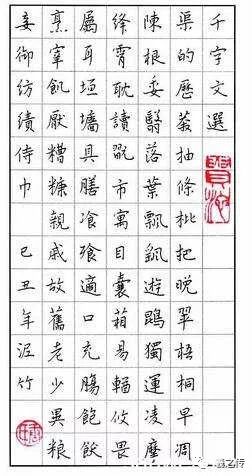 千字文選
渠的歷莽抽條枇把晚翠梧桐早凋
陳根委翳落葉飄飖遊鵾獨運凌摩
絳霄耽讀翫市寓目囊箱易輶攸畏
屬耳垣墻具膳飡飯適口充腸飽飫
烹宰飢厭糟糠親戚故舊老少異粮
妾御紡績侍巾 己丑年 竹